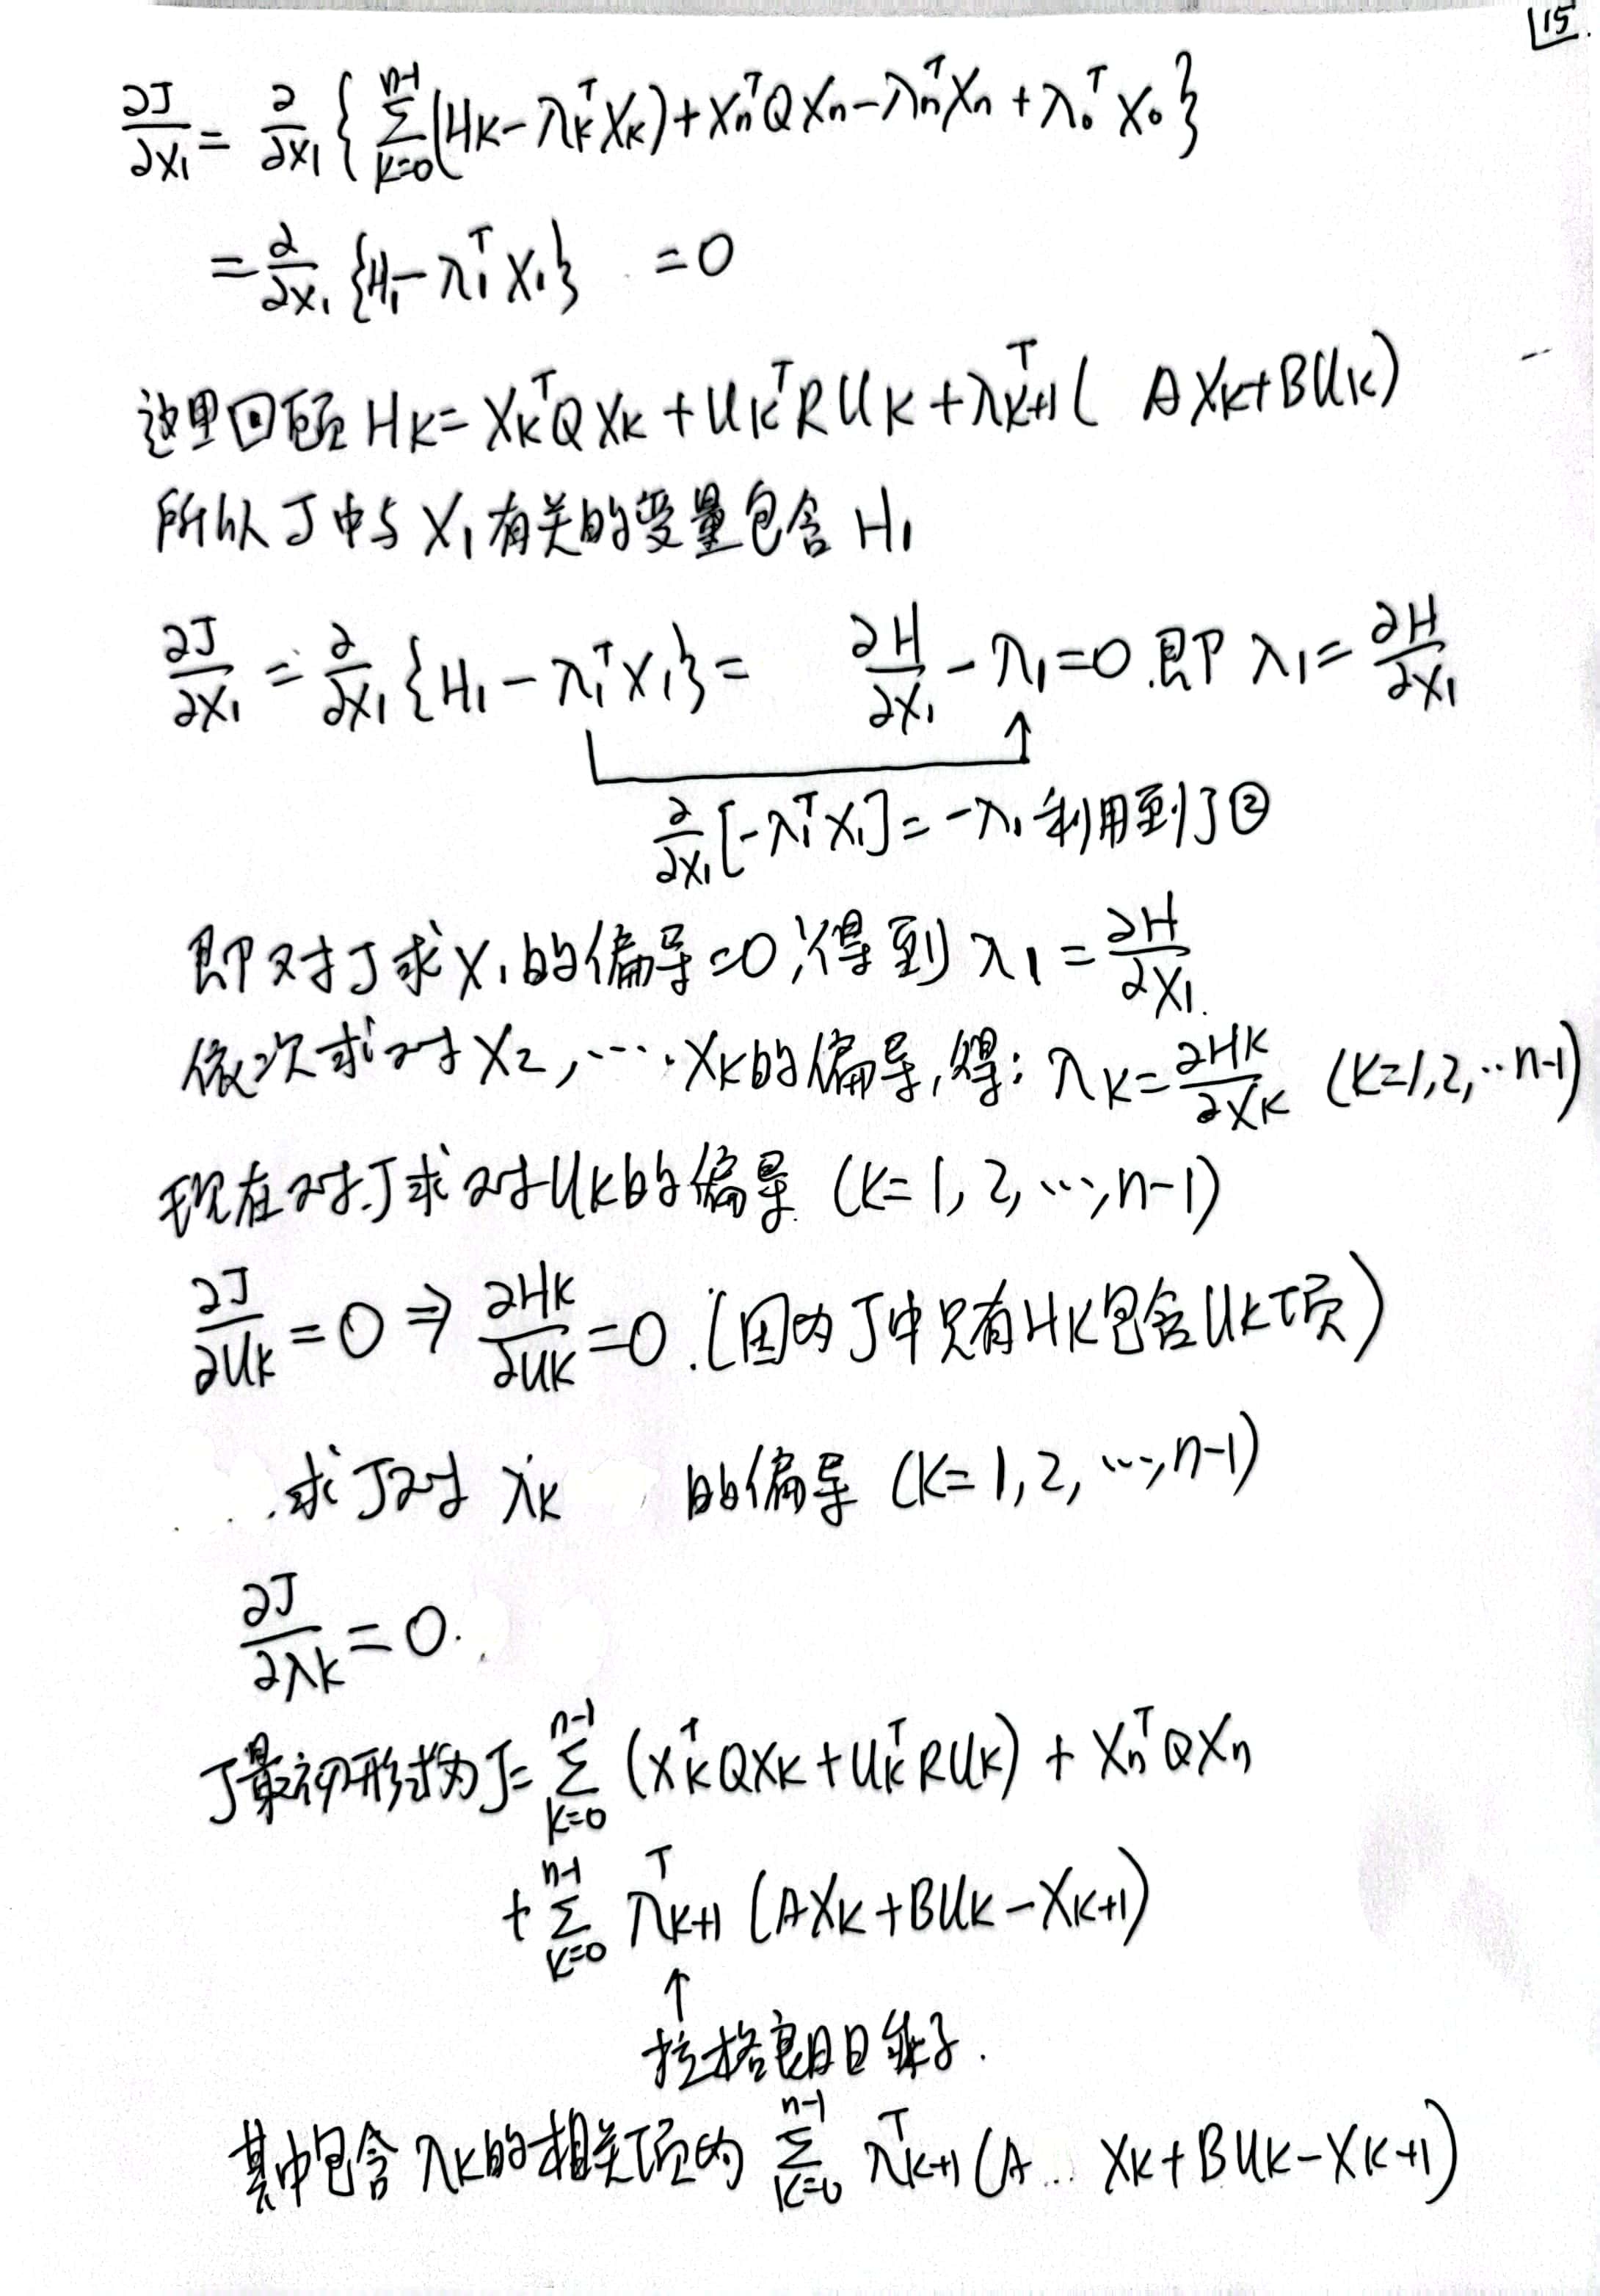 15.
∂J/∂X₁ = ∂/∂X₁ { Σ_{K=0}^{n-1} (H_K - λ_K^T X_K) + X_n^T Q X_n - λ_n^T X_n + λ_0^T X_0 }
= ∂/∂X₁ {H₁ - λ₁^T X₁} = 0
这里回顾 H_K = X_K^T Q X_K + U_K^T R U_K + λ_{K+1}^T ( A X_K + B U_K)
所以 J 中与 X₁ 有关的变量包含 H₁
∂J/∂X₁ = ∂/∂X₁ {H₁ - λ₁^T X₁} = ∂H/∂X₁ - λ₁ = 0 .即 λ₁ = ∂H/∂X₁
∂/∂X₁ [-λ₁^T X₁] = -λ₁ 利用到了②
即对 J 求 X₁ 的偏导 = 0, 得到 λ₁ = ∂H/∂X₁.
依次求对 X₂, ···. X_K 的偏导, 得: λ_K = ∂H_K/∂X_K (K=1,2,··n-1)
现在对 J 求对 U_K 的偏导. (K=1, 2, ···, n-1)
∂J/∂U_K = 0 ⇒ ∂H_K/∂U_K = 0 .(因为 J 中只有 H_K 包含 U_K 项)
求 J 对 λ_K 的偏导 (K=1, 2, ···, n-1)
∂J/∂λ_K = 0.
J 最初形式为 J = Σ_{K=0}^{n-1} (X_K^T Q X_K + U_K^T R U_K) + X_n^T Q X_n
+ Σ_{K=0}^{n-1} λ_{K+1}^T (A X_K + B U_K - X_{K+1})
↑
拉格朗日乘子.
其中包含 λ_K 的相关项为 Σ_{K=0}^{n-1} λ_{K+1}^T (A .. X_K + B U_K - X_{K+1})